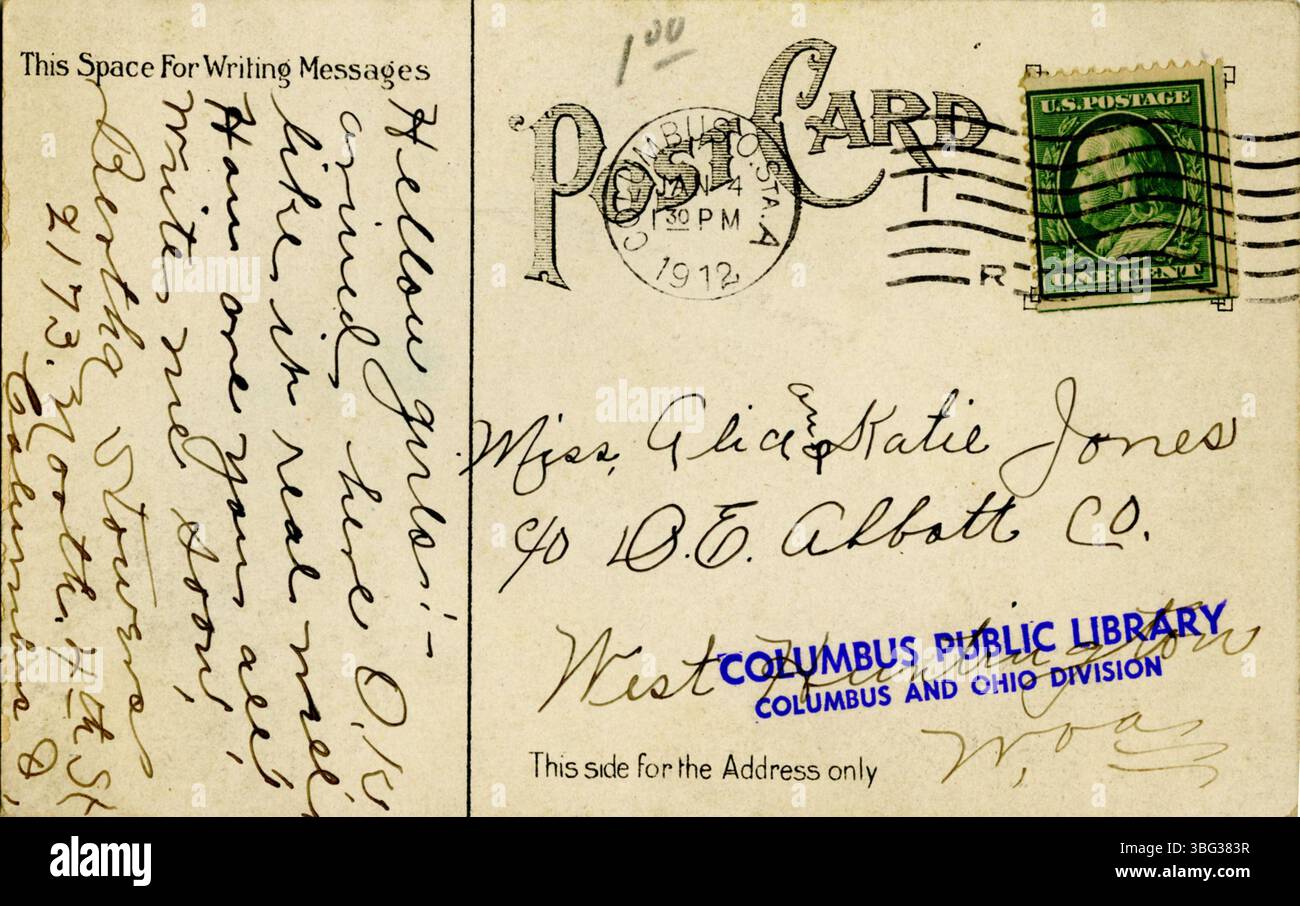 This Space For Writing Messages
Hellow girls:-
arived here O.K.
like it real well
How are you all,
write me soon,
Bertha Stowers
2173. North. 4th St
Columbus O,
1 00
POST CARD
COLUMBUS, O. STA. A
JAN 4
1 30 PM
1912
R
U.S. POSTAGE
ONE CENT
Miss, Alice and Katie Jones
c/o D.E. Abbott CO.
West Huntington
W. Va
COLUMBUS PUBLIC LIBRARY
COLUMBUS AND OHIO DIVISION
This side for the Address only
alamy
Image ID: 3BG383R
www.alamy.com